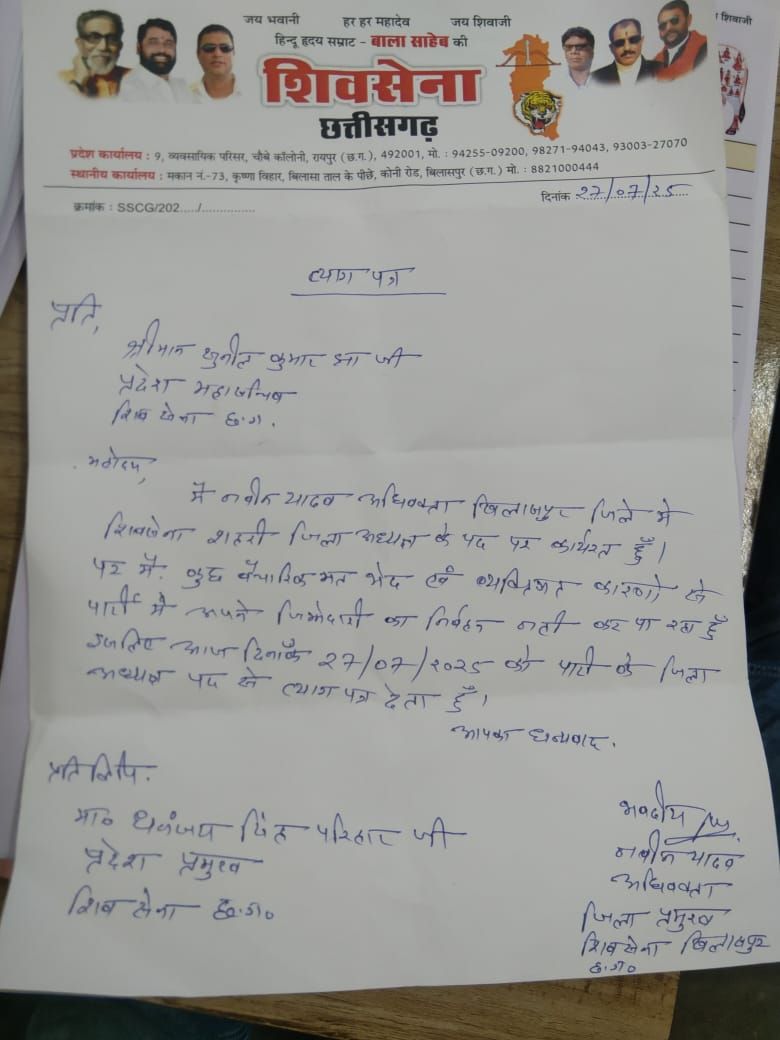 जय भवानी हर हर महादेव जय शिवाजी
हिन्दू हृदय सम्राट - बाला साहेब की
शिवसेना
छत्तीसगढ़
प्रदेश कार्यालय : 9, व्यवसायिक परिसर, चौबे कॉलोनी, रायपुर (छ.ग.), 492001, मो. : 94255-09200, 98271-94043, 93003-27070
स्थानीय कार्यालय : मकान नं.-73, कृष्णा विहार, बिलासा ताल के पीछे, कोनी रोड, बिलासपुर (छ.ग.) मो. : 8821000444
क्रमांक : SSCG/202..../...............
दिनांक 27/07/25
त्याग पत्र
प्रति,
श्रीमान सुनील कुमार झा जी
प्रदेश महासचिव
शिव सेना छ.ग.
महोदय,
मैं नवीन यादव अधिवक्ता बिलासपुर जिले में
शिवसेना शहरी जिला अध्यक्ष के पद पर कार्यरत हूँ।
पर मैं. कुछ वैचारिक मत भेद एवं व्यक्तिगत कारणो से
पार्टी में अपने जिमेदारी का निर्वहन नही कर पा रहा हूँ
इसलिए आज दिनाँक 27/07/2025 को पार्टी के जिला
अध्यक्ष पद से त्याग पत्र देता हूँ।
आपका धन्यवाद.
प्रतिलिपि.
मा० धनंजय सिंह परिहार जी
प्रदेश प्रमुख
शिव सेना छ.ग०
भवदीय
नवीन यादव
अधिवक्ता
जिला प्रमुख
शिवसेना बिलासपुर
छ.ग०
शिवाजी